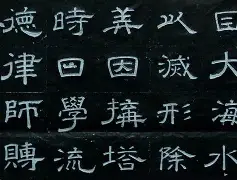 大海水
以滅形除
美因搆塔
時學流
德律師